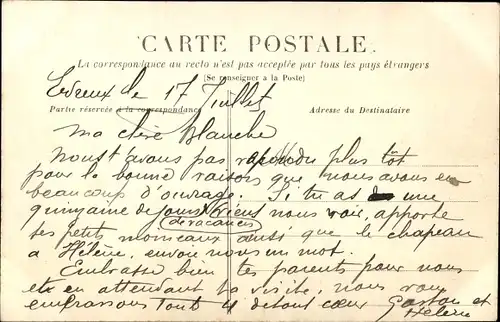 CARTE POSTALE
La correspondance au recto n'est pas acceptée par tous les pays étrangers
(Se renseigner à la Poste)
Evreux le 17 Juillet
Partie réservée à la correspondance
Adresse du Destinataire
Ma chère Blanche
Nous t'avons pas répondu plus tôt
pour la bonne raisons que nous avons eu
beaucoup d'ouvrage. Si tu as une
quinzaine de jours viens nous voir, apporte
de vacances
tes petits morceaux ainsi que le chapeau
a Hélène, envou nous un mot.
Embrasse bien tes parents pour nous
et en attendant ta visite, nous vous
embrassons tout 4 de tout cœur Gaston et
Hélène